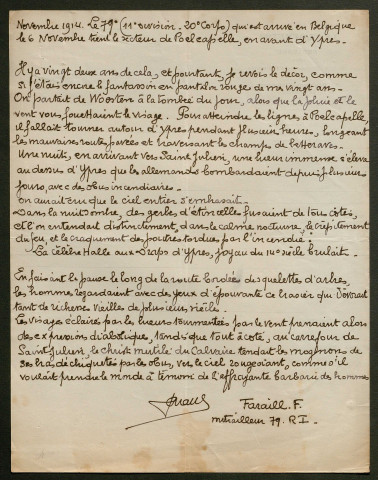 Novembre 1914. Le 79e (11e Division - 20e Corps) qui est arrivé en Belgique
le 6 Novembre tient le secteur de Poelcapelle, en avant d'Ypres -
Il y a vingt deux ans de cela, et pourtant, je revois le décor, comme
si j'étais encore le fantassin en pantalon rouge de ma vingt ans -
On partait de Woosten à la tombée du jour, alors que la pluie et le
vent vous fouettaient le visage. Pour atteindre les lignes, à Poelcapelle,
il fallait tourner autour d'Ypres pendant plusieurs heures, longeant
les mauvaises routes pavées et traversant les champs de betteraves -
Une nuit, en arrivant vers Saint Julien, une lueur immense s'éleva
au dessus d'Ypres que les allemands bombardaient depuis plusieurs
jours avec des obus incendiaires -
On aurait cru que le ciel entier s'embrasait -
Dans la nuit sombre, des gerbes d'étincelles fusaient de tous côtés,
et l'on entendait distinctement, dans le calme nocturne, le crépitement
du feu, et le craquement des poutres tordues par l'incendie.
La célèbre Halle aux Draps d'Ypres, joyau du 14e siècle brûlait -
En faisant la pause le long de la route bordée de squelettes d'arbres,
les hommes regardaient avec des yeux d'épouvante ce brasier qui dévorait
tant de richesses vieilles de plusieurs siècles -
Les visages éclairés par les lueurs tourmentées par le vent prenaient alors
des expressions diaboliques, tandis que tout à côté, au carrefour de
Saint Julien, le christ mutilé du Calvaire tendait les moignons de
ses bras déchiquetés par les obus, vers le ciel rougeoyant, comme s'il
voulait prendre le monde à témoin de l'effrayante barbarie des hommes
Faraill. F.
mitrailleur 79. R.I.